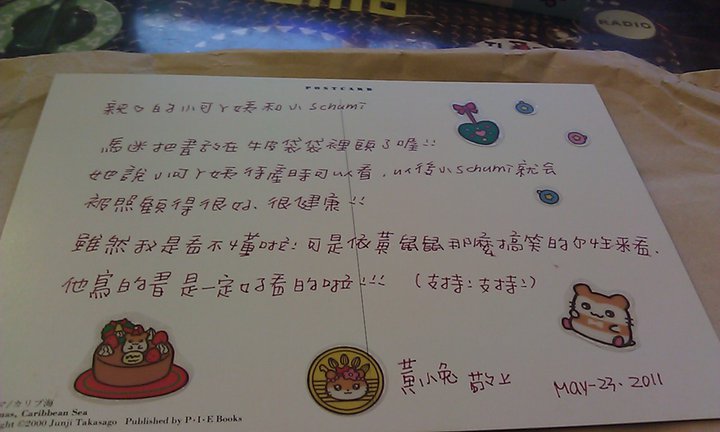 RADIO
POSTCARD
親ㄞ的小可ㄚ姨和小schumi
馬迷把書放在牛皮袋袋裡頭了喔!!
她說小可ㄚ姨待產時可以看,以後小schumi就会
被照顧得很好、很健康!!
雖然我是看不懂啦!可是依黃鼠鼠那麼搞笑的個性來看,
他寫的書是一定好看的啦!!! (支持!支持!)
黃小兔 敬上 May-23.2011
マ/カリブ海
mas, Caribbean Sea
ght ©2000 Junji Takasago Published by P·I·E Books